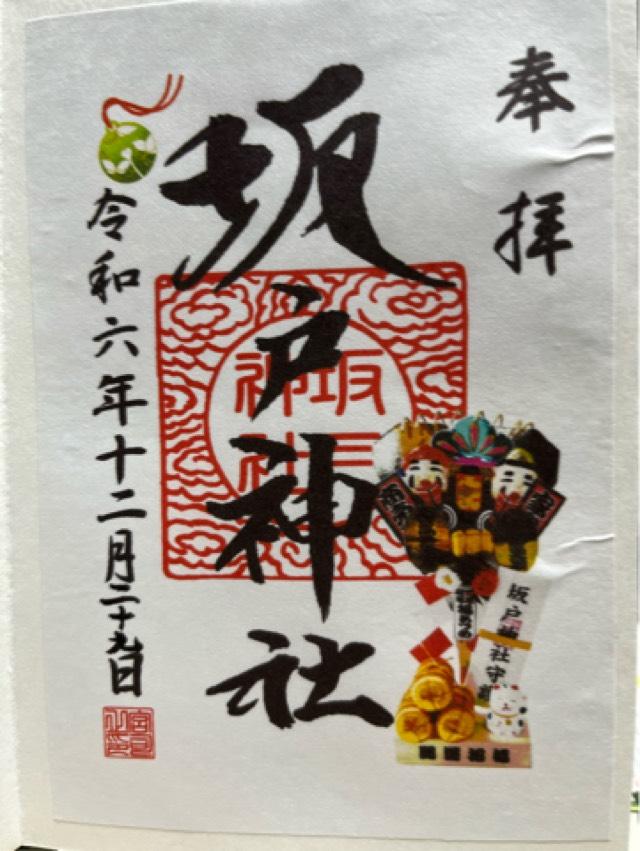 奉拝
坂戸神社
令和六年十二月二十九日
坂戸神社
坂戸神社守護